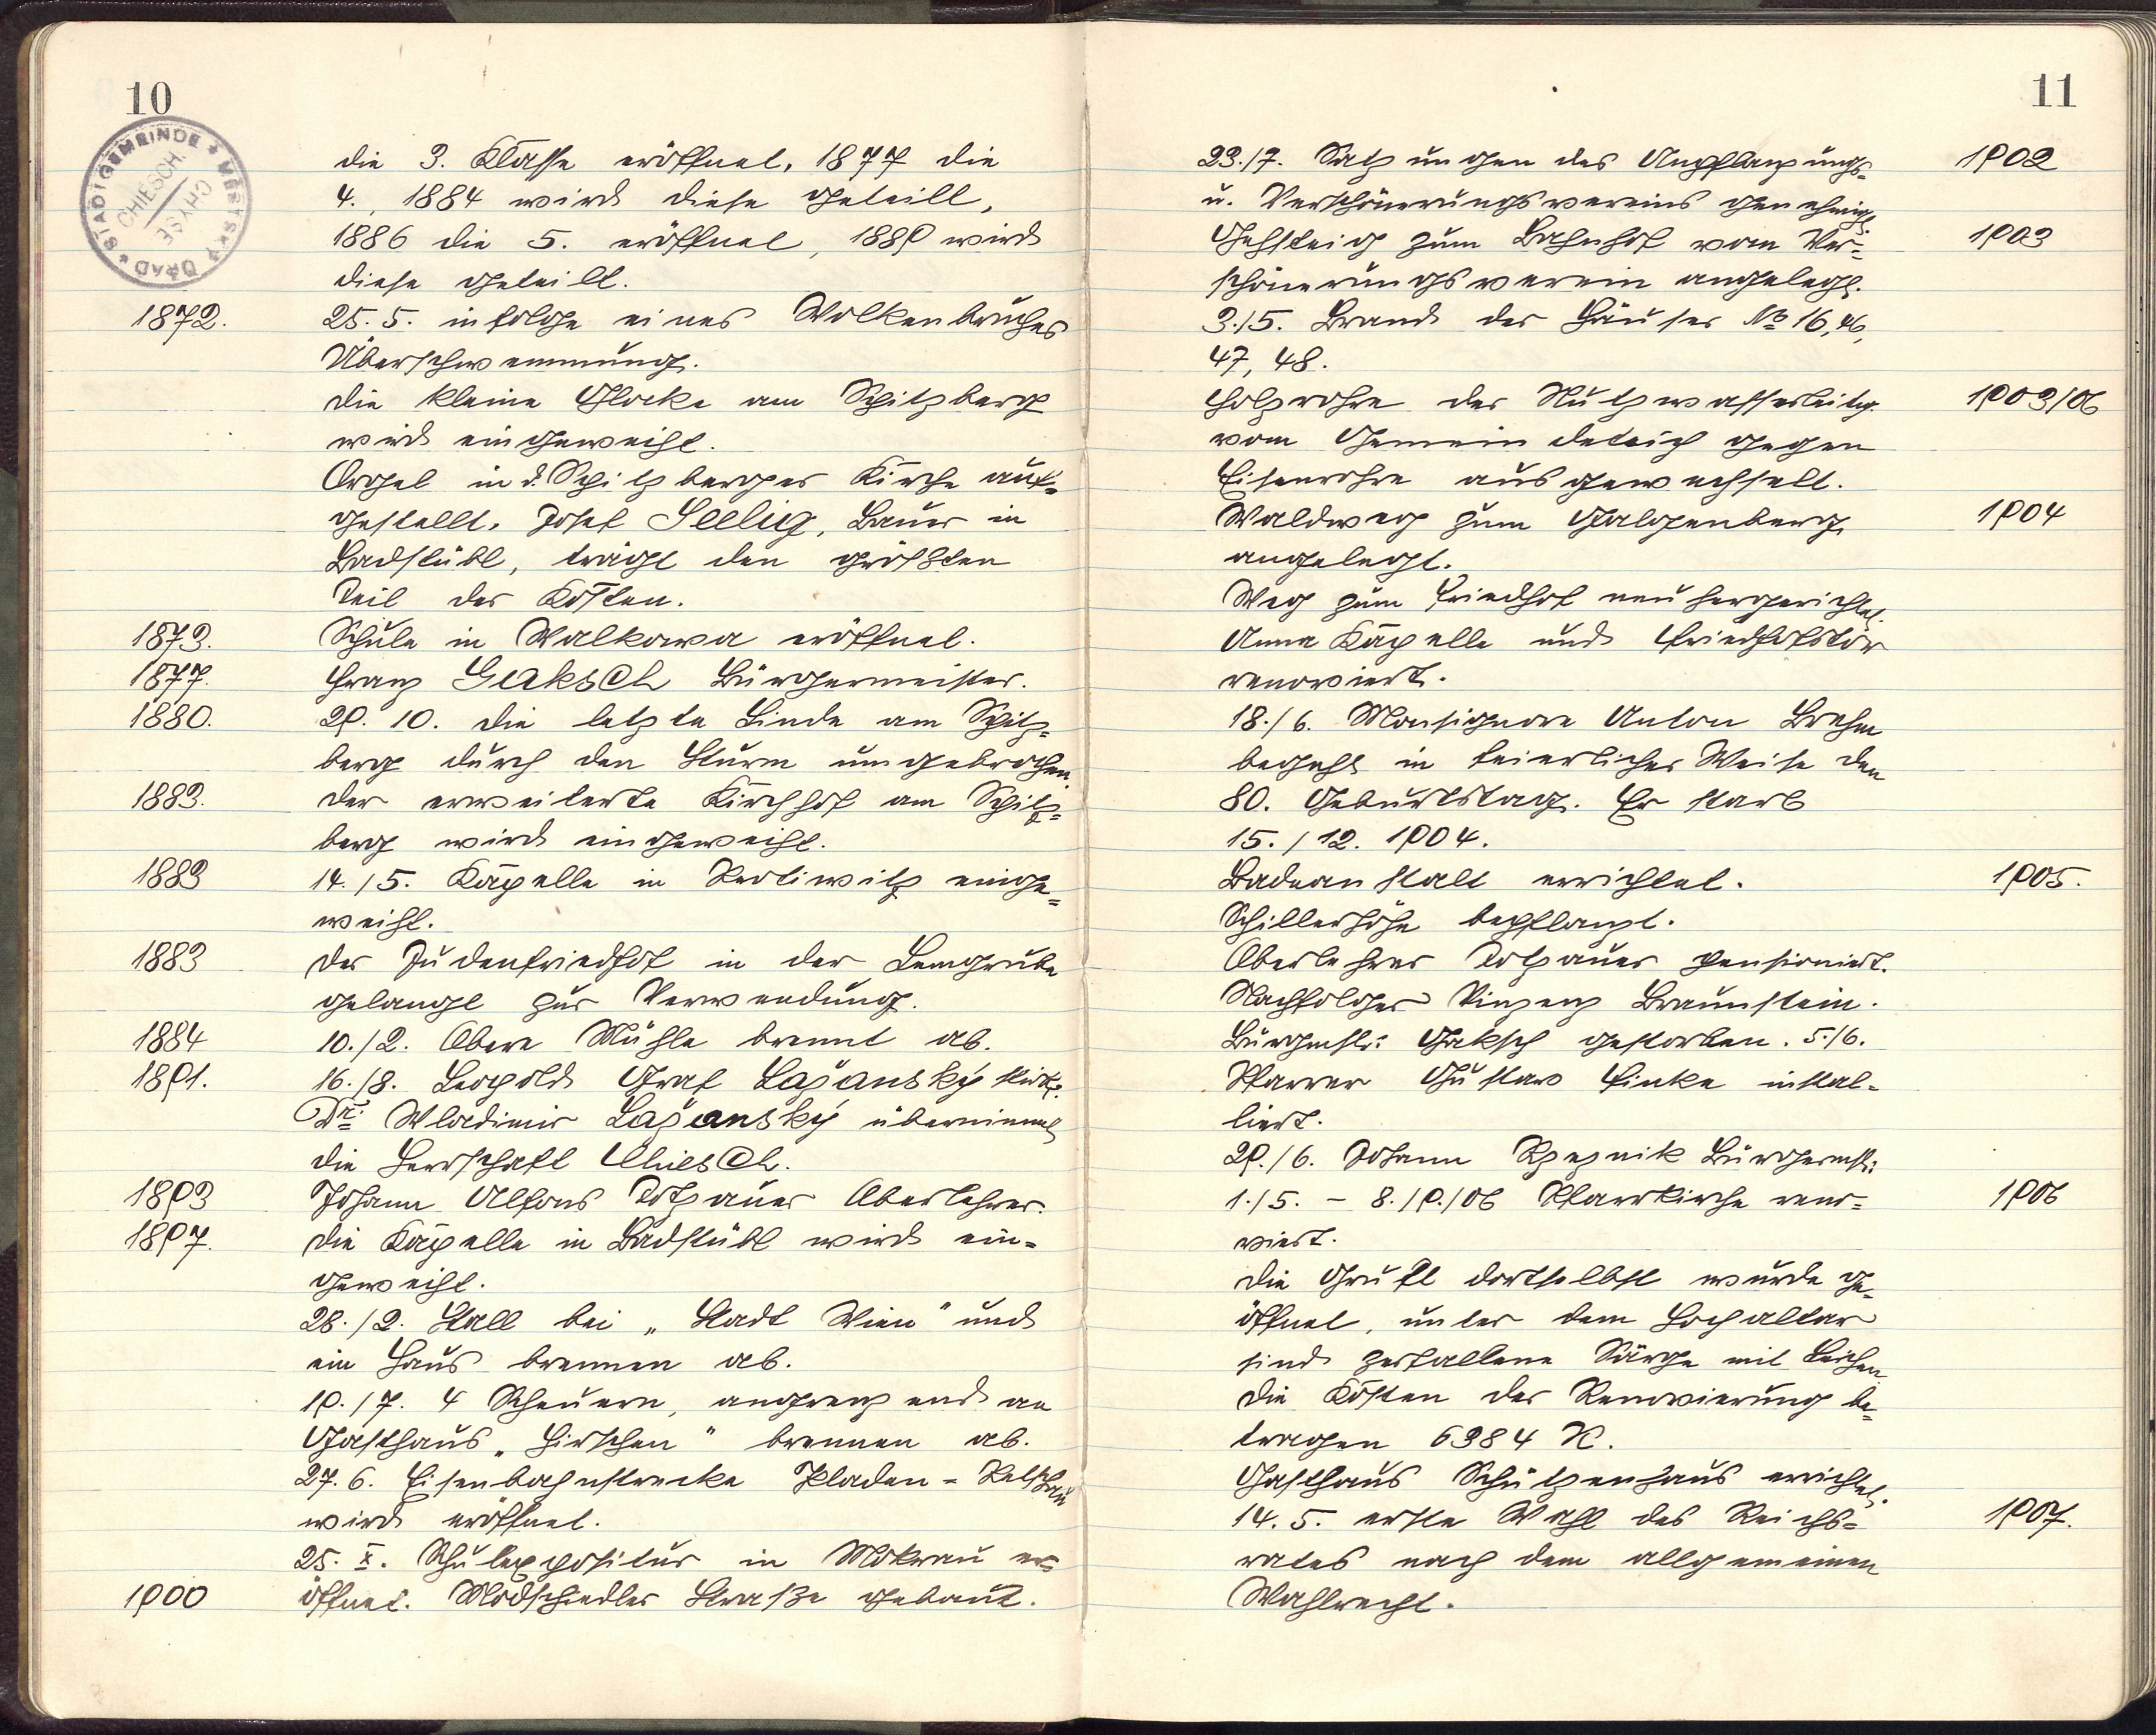 10
STADTGEMEINDE * MĚSTSKÝ ÚŘAD *
CHIESCH.
CHYŠE
die 3. Klasse eröffnet, 1877 die
4., 1884 wird diese geteilt,
1886 die 5. eröffnet, 1889 wird
diese geteilt.
1872. 25. 5. infolge eines Wolkenbruches
Überschwemmung.
Die kleine Glocke am Spitzberg
wird eingeweiht.
Orgel in d. Spitzberger Kirche auf-
gestellt. Josef Seelig, Bauer in
Badstübl, trägt den größten
Teil der Kosten.
1873. Schule in Walkowa eröffnet.
1877. Franz Gaksch Bürgermeister.
1880. 29. 10. die letzte Linde am Spitz-
berg durch den Sturm umgebrochen.
1883. Der erweiterte Kirchhof am Spitz-
berg wird eingeweiht.
1883 14./5. Kapelle in Protiwitz einge-
weiht.
1883 Der Judenfriedhof in der Lemgrube
gelangt zur Verwendung.
1884 10./2. Obere Mühle brennt ab.
1891. 16./8. Leopold Graf Lažanský stirbt.
Dr. Wladimir Lažanský übernimmt
die Herrschaft Chiesch.
1893 Johann Alfons Totzauer Oberlehrer.
1897. Die Kapelle in Badstübl wird ein-
geweiht.
28./2. Stall bei „Stadt Wien" und
ein Haus brennen ab.
19./7. 4 Scheuern, angrenzend an
Gasthaus „Hirschen" brennen ab.
27. 6. Eisenbahnstrecke Pladen - Petschau
wird eröffnet.
25. X. Schulexpositur in Mokrau er-
1900 öffnet. Modschiedler Straße gebaut.
11
23./7. Satzungen des Anpflanzungs- 1902
u. Verschönerungsvereins genehmigt
Gehsteig zum Bahnhof vom Ver- 1903
schönerungsverein angelegt.
3./5. Brand der Häuser No 16, 46,
47, 48.
Holzrohre der Nutzwasserleitg. 1903/06
vom Gemeindeteich gegen
Eisenrohre ausgewechselt.
Waldweg zum Galgenberg 1904
angelegt.
Weg zum Friedhof neu hergerichtet.
Anna Kapelle und Friedhofstor
renoviert.
18./6. Monsignore Anton Brehm
begeht in feierlicher Weise den
80. Geburtstag. Er starb
15./12. 1904.
Badeanstalt errichtet. 1905.
Schillerhöhe bepflanzt.
Oberlehrer Totzauer pensioniert.
Nachfolger Vinzenz Braunstein.
Bürgmstr. Gaksch gestorben. 5./6.
Pfarrer Gustav Finke instal-
liert.
29./6. Johann Rzeznik Bürgermstr.
1./5. - 8./9./06 Pfarrkirche reno- 1906
viert.
Die Gruft dortselbst wurde ge-
öffnet, unter dem Hochaltar
sind zerfallene Särge mit Leichen
Die Kosten der Renovierung be-
tragen 6384 K.
Gasthaus Schützenhaus errichtet.
14. 5. erste Wahl des Reichs- 1907.
rates nach dem allgemeinen
Wahlrecht.